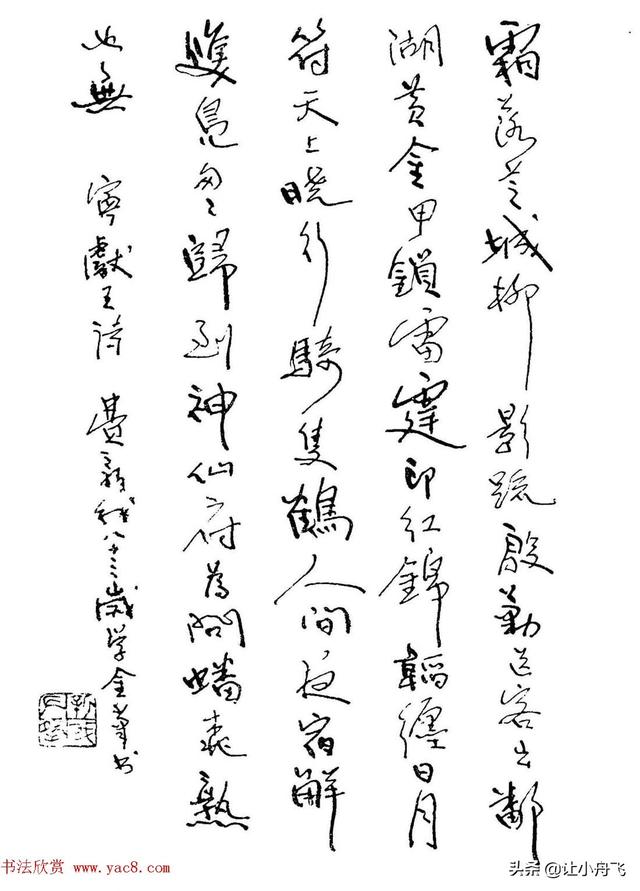 霜落芝城柳影疏殷勤送客出鄱
湖黄金甲鎖雷霆印红錦韜纏日月
符天上晓行騎隻鶴人间夜宿解
雙凫匆匆歸到神仙府为问蟠桃熟
也無 寧獻王诗 費新我八十三歲学金笔书
书法欣赏 www.yac8.com
头条 @让小舟飞